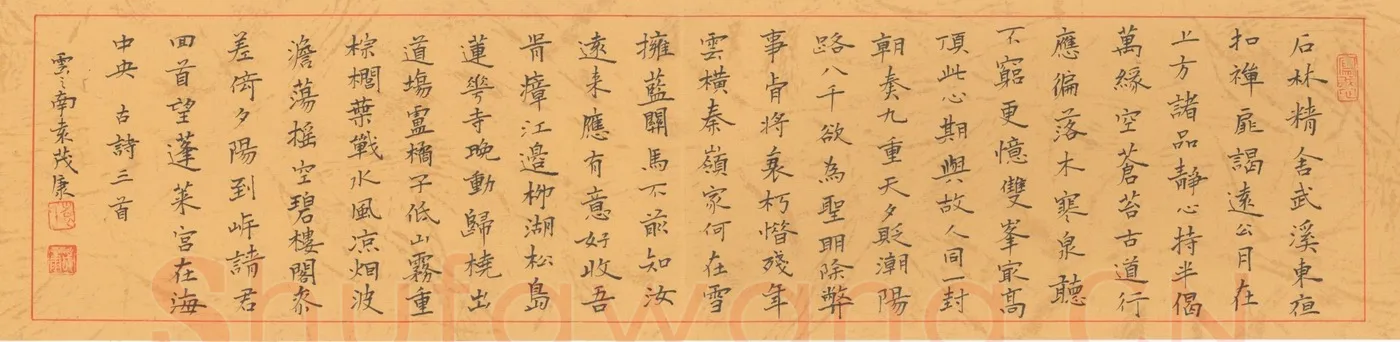 石林精舍武溪東夜
扣禪扉謁遠公月在
上方諸品靜心持半偈
萬緣空蒼苔古道行
應徧落木寒泉聽
不窮更憶雙峯最高
頂此心期與故人同一封
朝奏九重天夕貶潮陽
路八千欲為聖明除弊
事肯將衰朽惜殘年
雲橫秦嶺家何在雪
擁藍關馬不前知汝
遠来應有意好收吾
骨瘴江邊柳湖松島
蓮花寺晚動歸橈出
道場盧橘子低山霧重
棕櫚葉戰水風凉烟波
澹蕩搖空碧樓閣參
差倚夕陽到岸請君
回首望蓬萊宮在海
中央 古詩三首
雲之南袁茂康
Shufawang.cn